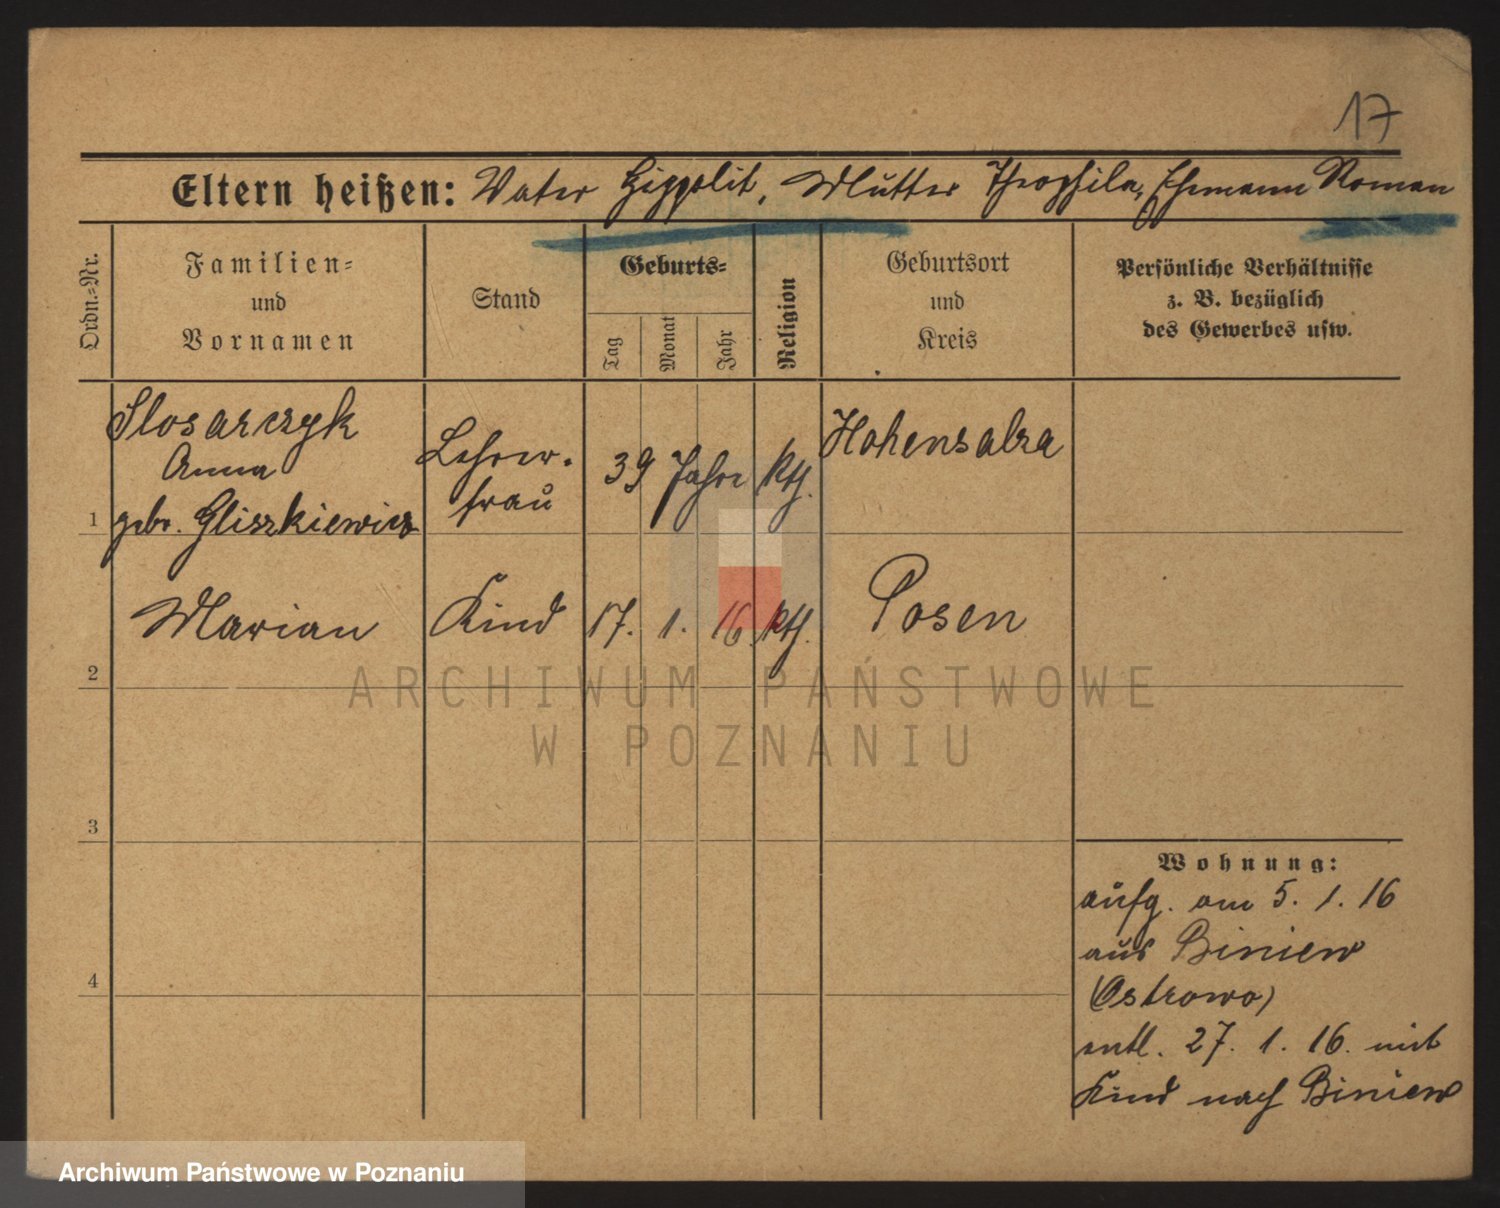 17
Eltern heißen: Vater Hippolit, Mutter Theophila, Ehemann Roman
Ordn.=Nr.
Familien=
und
Vornamen
Stand
Geburts=
Tag
Monat
Jahr
Religion
Geburtsort
und
Kreis
Persönliche Verhältnisse
z. B. bezüglich
des Gewerbes usw.
1
Slosarczyk
Anna
gebr. Gliszkiewicz
Lehrer-
frau
39 Jahre
kth.
Hohensalza
2
Marian
Kind
17.
1.
16.
kth.
Posen
3
4
Wohnung:
aufg. am 5. 1. 16
aus Biniew
(Ostrowo)
entl. 27. 1. 16. mit
Kind nach Biniew
ARCHIWUM PAŃSTWOWE
W POZNANIU
Archiwum Państwowe w Poznaniu